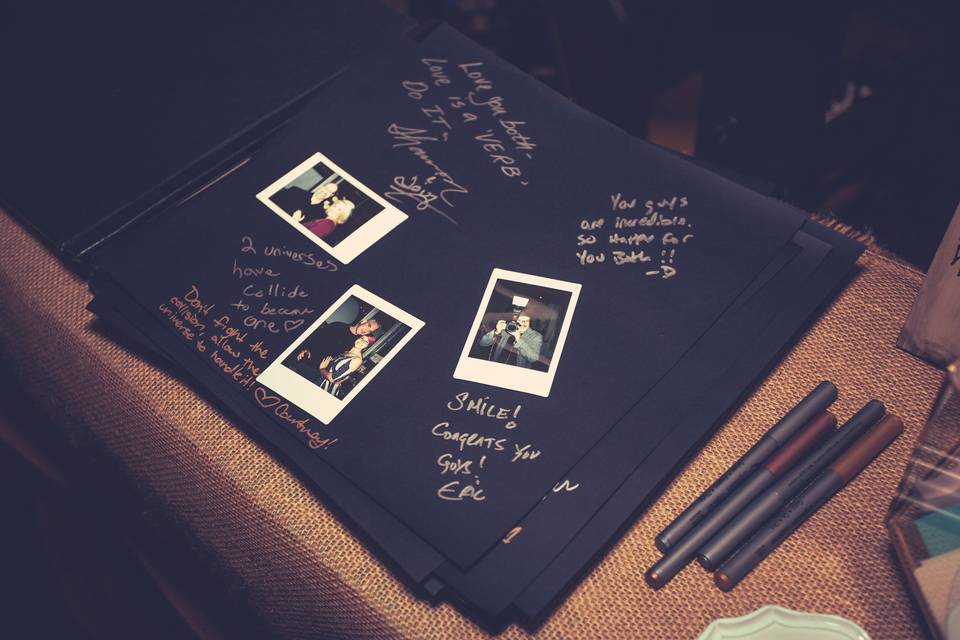 Love you both -
Love is a 'VERB'.
Do IT -
You guys
are incredible.
so Happy for
You Both !!
-D
2 universes
have
Collide
to become
one ♡
Don't fight the
collision, allow the
universe to handle it!
♡ Courtney!
SMILE!
CONGRATS YOU
GUYS!
ERIC